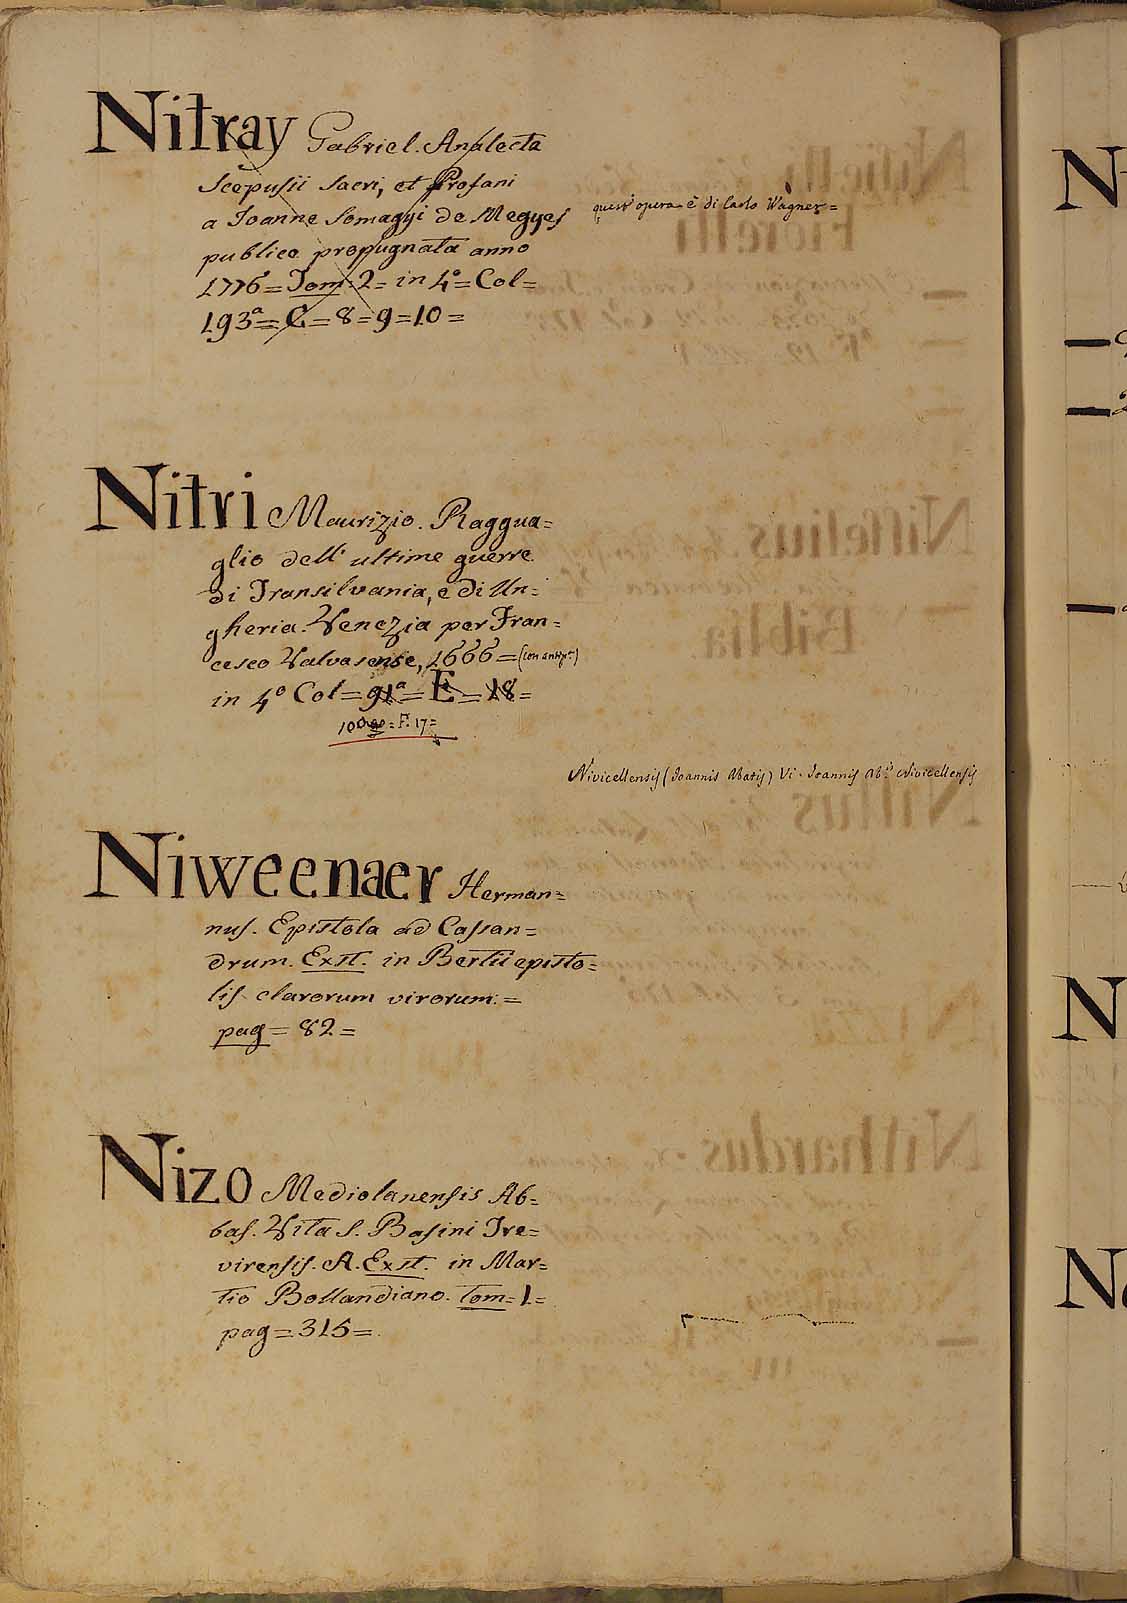 Nitray Gabriel. Analecta
Scepusii sacri, et Profani
a Joanne Somagyi de Megyes
publico propugnata anno
1776 = Tom. 2 = in 4.º = Col =
193ª = C = 8 = 9 = 10 =
quest' opera è di Carlo Wagner =
Nitri Maurizio. Raggua=
glio dell' ultime guerre
di Transilvania, e di Un=
gheria. Venezia per Fran=
cesco Valvasense, 1666 = (con antip.)
in 4º Col = 91ª = E = 18 =
100 = F. 17 =
Nivicellensis (Joannis Abatis) Vi. Joannis Ab.is Nivicellensis
Niweenaer Herman=
nus. Epistola ad Cassan=
drum. Exst. in Bertii episto=
lis clarorum virorum. =
pag = 82 =
Nizo Mediolanensis Ab=
bas. Vita S. Basini Tre=
virensis. A. Exst. in Mar=
tio Bollandiano. Tom = 1 =
pag = 315 =